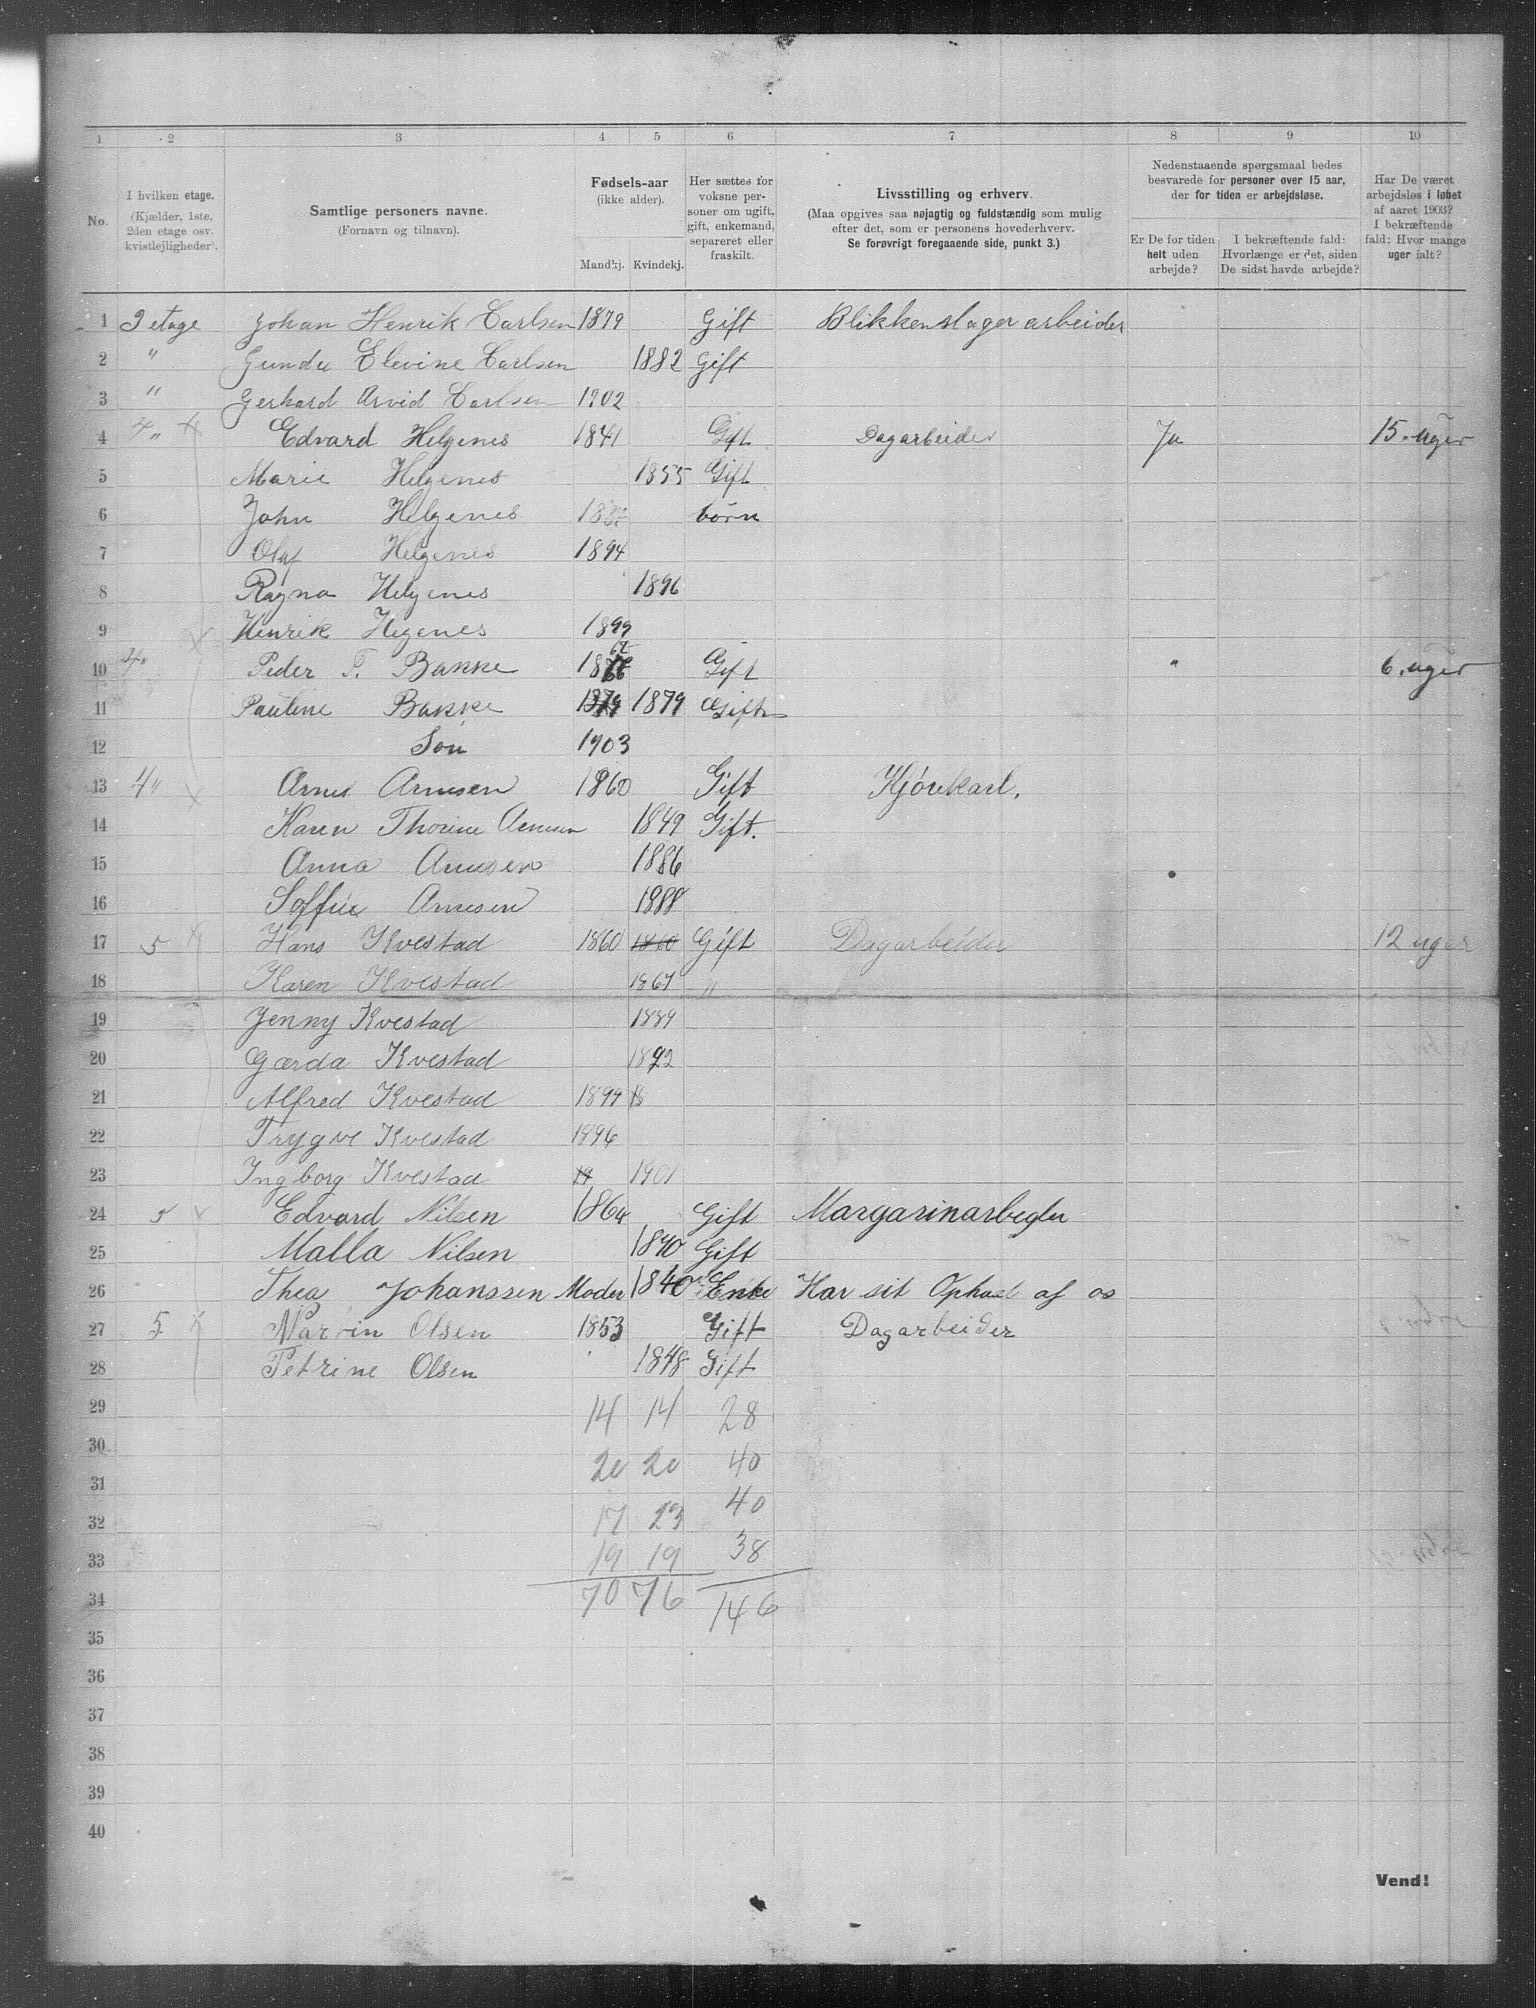 1 2 3 4 5 6 7 8 9 10
No.
I hvilken etage. (Kjælder, 1ste, 2den etage osv. kvistlejligheder).
Samtlige personers navne. (Fornavn og tilnavn).
Fødsels-aar (ikke alder). Mandkj. Kvindekj.
Her sættes for voksne personer om ugift, gift, enkemand, separeret eller fraskilt.
Livsstilling og erhverv. (Maa opgives saa nøjagtig og fuldstændig som mulig efter det, som er personens hovederhverv. Se forøvrigt foregaaende side, punkt 3.)
Nedenstaaende spørgsmaal bedes besvarede for personer over 15 aar, der for tiden er arbejdsløse.
Er De for tiden helt uden arbejde?
I bekræftende fald: Hvorlænge er det, siden De sidst havde arbejde?
Har De været arbejdsløs i løbet af aaret 1903? I bekræftende fald: Hvor mange uger ialt?
1 3 etage Johan Henrik Carlsen 1879 Gift Blikkenslager arbeider
2 " Gunda Elevine Carlsen 1882 Gift
3 " Gerhard Arvid Carlsen 1902
4 4 " Edvard Helgenes 1841 Gift Dagarbeider Ja 15. uger
5 Marie Helgenes 1855 Gift
6 John Helgenes 1887 børn
7 Olaf Helgenes 1894
8 Ragna Helgenes 1896
9 Henrik Hegenes 1899
10 4 " Peder T. Bakke 18 67 Gift " 6. uger
11 Pauline Bakke 1879 1879 Gift
12 Søn 1903
13 4 " Arne Arnesen 1860 Gift Kjørekarl.
14 Karen Thorine Arnesen 1849 Gift.
15 Anna Arnesen 1886
16 Soffie Arnesen 1888
17 5 Hans Kvestad 1860 1860 Gift Dagarbeider 12 uger
18 Karen Kvestad 1867 "
19 Jenny Kvestad 1889
20 Gærda Kvestad 1892
21 Alfred Kvestad 1899 18
22 Trygve Kvestad 1896
23 Ingborg Kvestad 19 1901
24 5 Edvard Nilsen 1864 Gift Margarinarbegder
25 Malla Nilsen 1870 Gift
26 Thea Johanssen Moder 1840 Enke Har sit Ophold af os
27 5 Marvin Olsen 1853 Gift Dagarbeider
28 Petrine Olsen 1848 Gift
29 14 14 28
30 20 20 40
31 17 23 40
32 19 19 38
33 70 76 146
34
35
36
37
38
39
40
Vend!